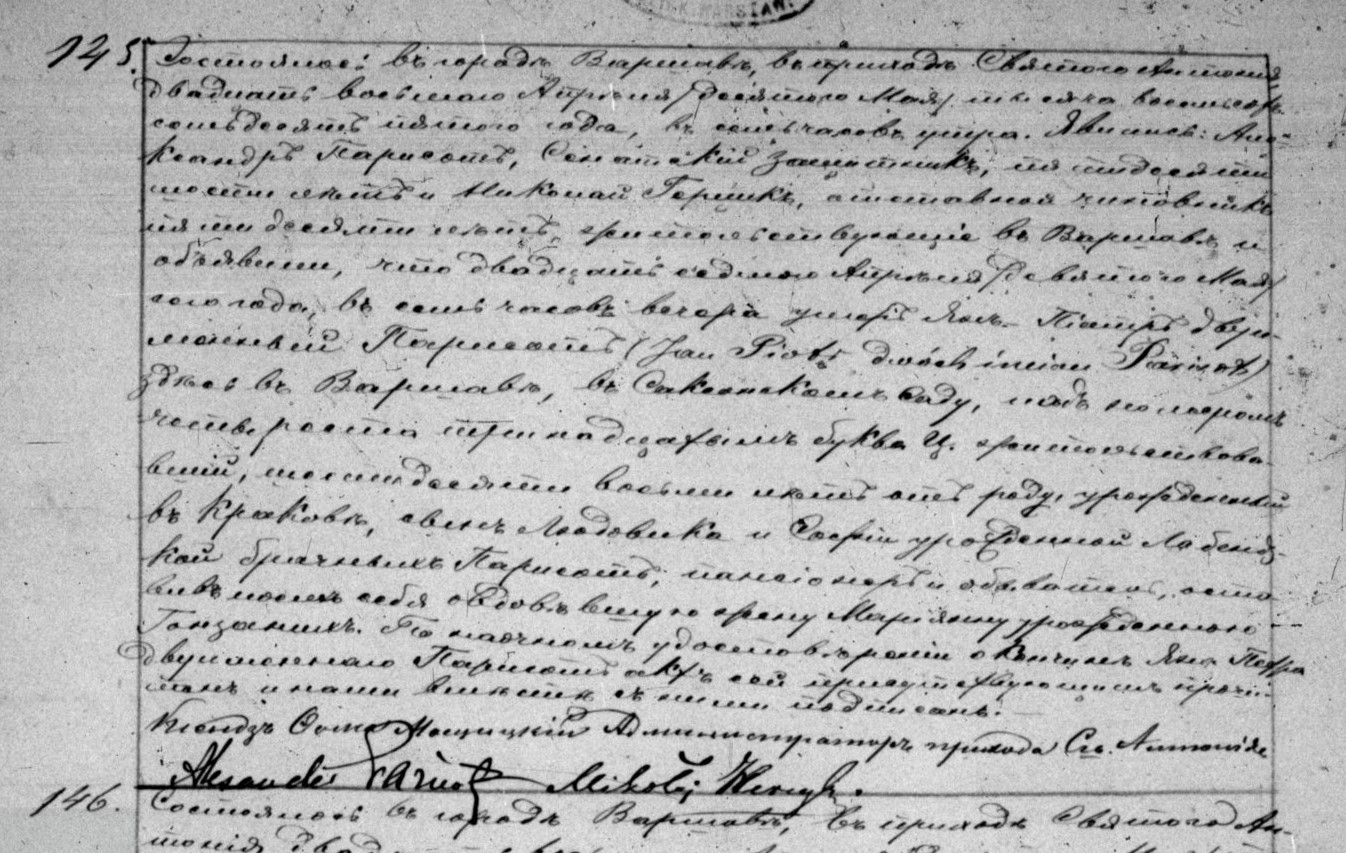 145.
Состоялось въ городѣ Варшавѣ, въ приходѣ Святого Антонія
двадцать восьмого Апрѣля /десятого Мая/ тысяча восемьсотъ
семьдесятъ пятого года, въ семь часовъ утра. Явились: Але-
ксандръ Парисотъ, Сенатскій защитникъ, пятидесяти
шести лѣтъ и Николай Герикъ, отставной чиновникъ
пятидесяти лѣтъ, жительствующіе въ Варшавѣ и
объявили, что двадцать седьмого Апрѣля /девятого Мая/
сего года, въ семь часовъ вечера умеръ Янъ-Піотръ двуи-
менный Парисотъ (Jan Piotr dwóch imion Parisot)
здѣсь въ Варшавѣ, въ Саксонскомъ Саду, подъ номеромъ
четыреста тринадцатымъ буква Ц. жительствова-
вшій, шестидесяти восьми лѣтъ отъ роду, урожденный
въ Краковѣ, сынъ Людовика и Софіи урожденной Лабенд-
кой брачныхъ Парисотъ, пансіонеръ и обыватель, оста-
вивъ послѣ себя овдовѣвшую жену Маріянну урожденную
По наочномъ удостовѣреніи о кончинѣ Яна Петра
двуименнаго Парисотъ актъ сей присутствующимъ прочи-
танъ и нами вмѣстѣ съ ними подписанъ.
Ксендзъ Мощицкій Администраторъ прихода Св. Антонія
Alexander Parisot Mikołaj
146.
Состоялось въ городѣ Варшавѣ, въ приходѣ Святого Ан-
тонія